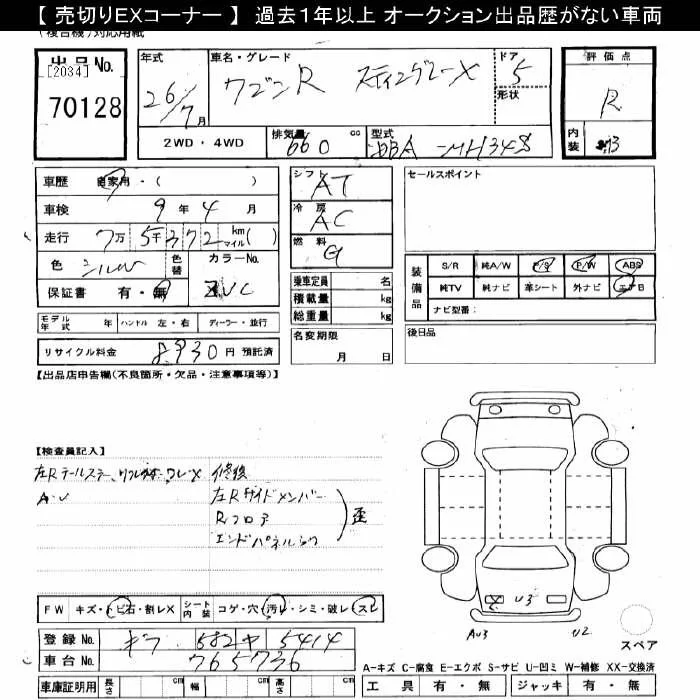 【 売切りEXコーナー 】 過去1年以上 オークション出品歴がない車両
(複合機)対応用紙
出品 No.
[2034]
70128
年式
26/7月
車名・グレード
ワゴンR スティングレーX
ドア
5
形状
評価点
R
内装
2WD・4WD
排気量
660 cc
型式
DBA-MH34S
車歴 自家用・( )
車検 9年 4月
走行 7万 5千372 km マイル( )
色 シルバ
色替
カラーNo.
ZVC
保証書 有・無
シフト
AT
冷房
AC
燃料
G
乗車定員 名
積載量 kg
総重量 kg
名変期限
月 日
セールスポイント
装備品
S/R 純A/W P/S P/W ABS
純TV 純ナビ 革シート 外ナビ エアB
ナビ型番:
後日品
モデル年式 年 ハンドル 左・右 ディーラー・並行
リサイクル料金 8930円 預託済
【出品店申告欄(不良箇所・欠品・注意事項等)】
【検査員記入】
左Rテールステー、リフレクター ワレ・X
A・U
修復
左Rサイドメンバー
Rフロア
エンドパネル
歪
FW キズ・トビ石・割レX
シート内装 コゲ・穴・汚レ・シミ・破レ・スレ
X
U3
AU3
U2
スペア
登録 No. 582 5414
車台 No. 765736
A-キズ C-腐食 E-エクボ S-サビ U-凹ミ W-補修 XX-交換済
車庫証明用 長さ cm 幅 cm 高さ cm
工具 有・無 ジャッキ 有・無